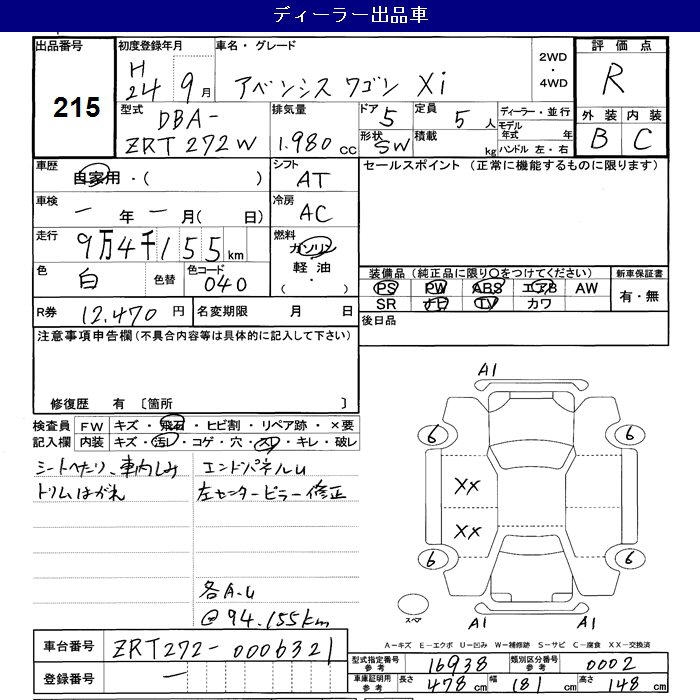 ディーラー出品車
出品番号 初度登録年月 車名・グレード 2WD・4WD 評価点
215 H24 9月 アベンシス ワゴン Xi R
型式 排気量 ドア 5 定員 5人 ディーラー・並行 外装 内装
DBA-ZRT272W 1.980cc 形状 SW 積載 kg モデル年式 年 B C
ハンドル 左・右
車歴 自家用・( ) シフト AT セールスポイント (正常に機能するものに限ります)
車検 一年一月( 日) 冷房 AC
走行 9万4千155km 燃料 ガソリン
色 白 色替 色コード 040 軽油・( )
装備品(純正品に限り○をつけてください) 新車保証書
PS PW ABS エアB AW 有・無
SR ナビ TV カワ
R券 12,470円 名変期限 月 日 後日品
注意事項申告欄(不具合内容等は具体的に記入して下さい)
修復歴 有 〔箇所 〕
検査員 FW キズ・飛石・ヒビ割・リペア跡・×要
記入欄 内装 キズ・汚レ・コゲ・穴・スレ・キレ・破レ
シートへたり、車内しみ エンドパネルU
トリムはがれ 左センターピラー修正
各A.U
@94.155km
A1
6 6
XX
XX
6 6
スペア A1 A1
A=キズ E=エクボ U=凹み W=補修跡 S=サビ C=腐食 XX=交換済
車台番号 ZRT272-0006321
型式指定番号 参考 16938 類別区分番号 参考 0002
登録番号 一
車庫証明用 参考 長さ 478cm 幅 181cm 高さ 148cm